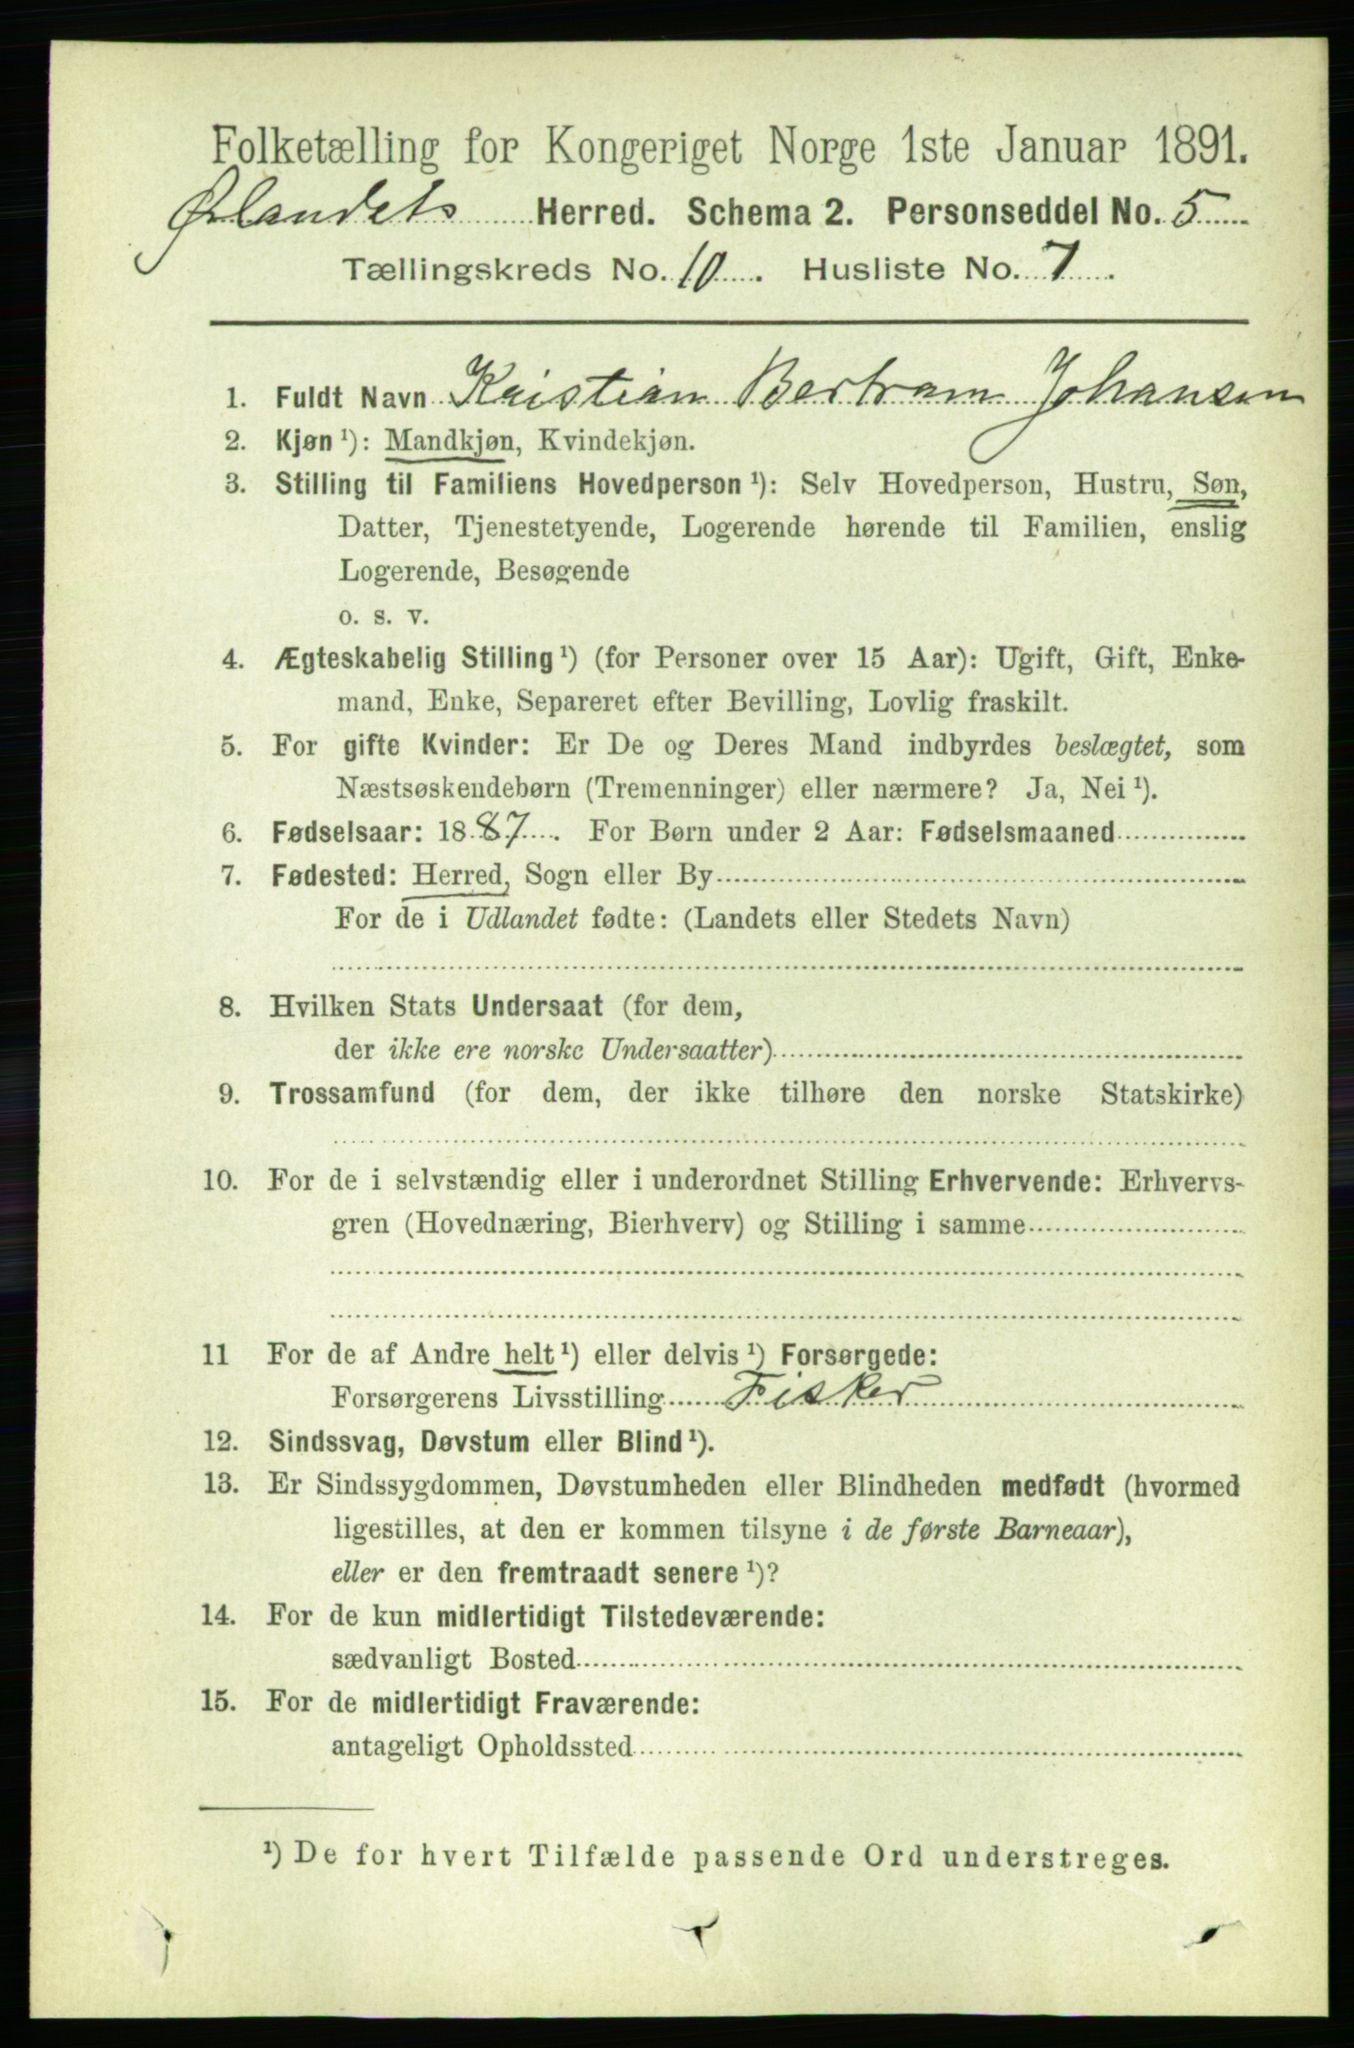 Folketælling for Kongeriget Norge 1ste Januar 1891.
Ørlandets Herred. Schema 2. Personseddel No. 5
Tællingskreds No. 10. Husliste No. 7.
1. Fuldt Navn Kristian Bertram Johansen
2. Kjøn ¹): Mandkjøn, Kvindekjøn.
3. Stilling til Familiens Hovedperson ¹): Selv Hovedperson, Hustru, Søn,
Datter, Tjenestetyende, Logerende hørende til Familien, enslig
Logerende, Besøgende
o. s. v.
4. Ægteskabelig Stilling ¹) (for Personer over 15 Aar): Ugift, Gift, Enke-
mand, Enke, Separeret efter Bevilling, Lovlig fraskilt.
5. For gifte Kvinder: Er De og Deres Mand indbyrdes beslægtet, som
Næstsøskendebørn (Tremenninger) eller nærmere? Ja, Nei ¹).
6. Fødselsaar: 1887. For Børn under 2 Aar: Fødselsmaaned
7. Fødested: Herred, Sogn eller By
For de i Udlandet fødte: (Landets eller Stedets Navn)
8. Hvilken Stats Undersaat (for dem,
der ikke ere norske Undersaatter)
9. Trossamfund (for dem, der ikke tilhøre den norske Statskirke)
10. For de i selvstændig eller i underordnet Stilling Erhvervende: Erhvervs-
gren (Hovednæring, Bierhverv) og Stilling i samme
11 For de af Andre helt ¹) eller delvis ¹) Forsørgede:
Forsørgerens Livsstilling Fisker
12. Sindssvag, Døvstum eller Blind ¹).
13. Er Sindssygdommen, Døvstumheden eller Blindheden medfødt (hvormed
ligestilles, at den er kommen tilsyne i de første Barneaar),
eller er den fremtraadt senere ¹)?
14. For de kun midlertidigt Tilstedeværende:
sædvanligt Bosted
15. For de midlertidigt Fraværende:
antageligt Opholdssted
¹) De for hvert Tilfælde passende Ord understreges.